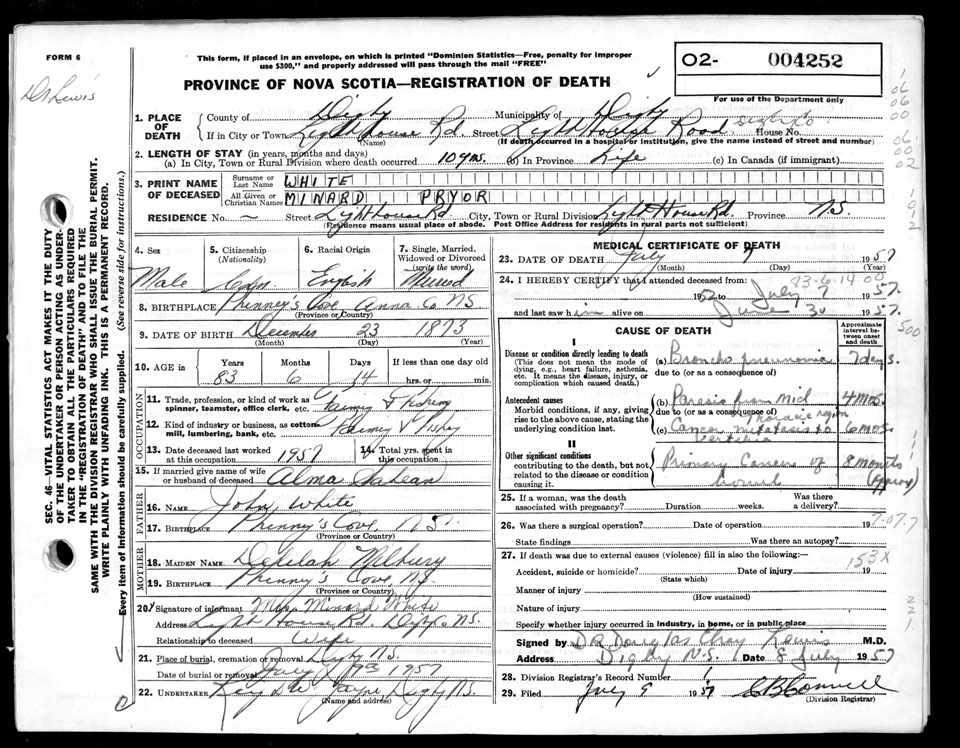 FORM 6
Dr Lewis
This form, if placed in an envelope, on which is printed "Dominion Statistics—Free, penalty for improper
use $300," and properly addressed will pass through the mail "FREE"
PROVINCE OF NOVA SCOTIA—REGISTRATION OF DEATH
02- 004252
For use of the Department only
1. PLACE OF DEATH
County of Digby Municipality of Digby
If in City or Town Lighthouse Rd. Street Light House Road House No.
(Name) (If death occurred in a hospital or institution, give the name instead of street and number)
2. LENGTH OF STAY (in years, months and days)
(a) In City, Town or Rural Division where death occurred 10 yrs. (b) In Province Life (c) In Canada (if immigrant)
3. PRINT NAME OF DECEASED
Surname or Last Name WHITE
All Given or Christian Names MINARD PRYOR
RESIDENCE No. ~ Street Lighthouse Rd City, Town or Rural Division Light House Rd. Province N.S.
(Residence means usual place of abode. Post Office Address for residents in rural parts not sufficient)
4. Sex
Male
5. Citizenship (Nationality)
Cdn
6. Racial Origin
English
7. Single, Married, Widowed or Divorced (write the word)
8. BIRTHPLACE Phinney's Cove Anna Co NS
(Province or Country)
9. DATE OF BIRTH December 23 1873
(Month) (Day) (Year)
10. AGE in
Years Months Days If less than one day old
83 6 14 hrs. or min.
OCCUPATION
11. Trade, profession, or kind of work as spinner, teamster, office clerk, etc. Farming & Fishing
12. Kind of industry or business, as cotton mill, lumbering, bank, etc.
13. Date deceased last worked at this occupation 1957
14. Total yrs. spent in this occupation
15. If married give name of wife or husband of deceased Alma
FATHER
16. NAME John White
17. BIRTHPLACE Phinney's Cove, NS.
(Province or Country)
MOTHER
18. MAIDEN NAME Delilah Milbury
19. BIRTHPLACE Phinney's Cove, NS.
(Province or Country)
20. Signature of informant Mrs. Minard White
Address Light House Rd Digby NS.
Relationship to deceased Wife
21. Place of burial, cremation or removal Digby N.S.
Date of burial or removal July 1957
22. UNDERTAKER Jayne, Digby N.S.
(Name and address)
MEDICAL CERTIFICATE OF DEATH
23. DATE OF DEATH July 7 1957
(Month) (Day) (Year)
83-6-14
24. I HEREBY CERTIFY that I attended deceased from:
1952 to July 7 1957.
and last saw him alive on June 30 1957.
CAUSE OF DEATH
Approximate interval between onset and death
I
Disease or condition directly leading to death
(This does not mean the mode of dying, e.g., heart failure, asthenia, etc. It means the disease, injury, or complication which caused death.)
(a) Broncho pneumonia 7 days.
due to (or as a consequence of)
Antecedent causes
Morbid conditions, if any, giving rise to the above cause, stating the underlying condition last.
(b) Paresis from mid 4 mos.
due to (or as a consequence of) thoracic region
(c) Cancer metastasis to vertebra 6 mos.
II
Other significant conditions
contributing to the death, but not related to the disease or condition causing it.
Primary Cancer of bowel 8 months (approx)
25. If a woman, was the death associated with pregnancy? Duration weeks. Was there a delivery?
26. Was there a surgical operation? Date of operation 19
State findings Was there an autopsy?
27. If death was due to external causes (violence) fill in also the following:—
153X
Accident, suicide or homicide? Date of injury 19
(State which)
Manner of injury
(How sustained)
Nature of injury
Specify whether injury occurred in industry, in home, or in public place
Signed by DR Douglas Lewis M.D.
Address Digby N.S. Date 8 July 1957
28. Division Registrar's Record Number
29. Filed July 9 1957
(Division Registrar)
SEC. 46—VITAL STATISTICS ACT MAKES IT THE DUTY
OF THE UNDERTAKER OR PERSON ACTING AS UNDER-
TAKER TO OBTAIN ALL THE PARTICULARS REQUIRED
IN THE "REGISTRATION OF DEATH" AND TO FILE THE
SAME WITH THE DIVISION REGISTRAR WHO SHALL ISSUE THE BURIAL PERMIT.
WRITE PLAINLY WITH UNFADING INK. THIS IS A PERMANENT RECORD.
Every item of information should be carefully supplied. (See reverse side for instructions.)